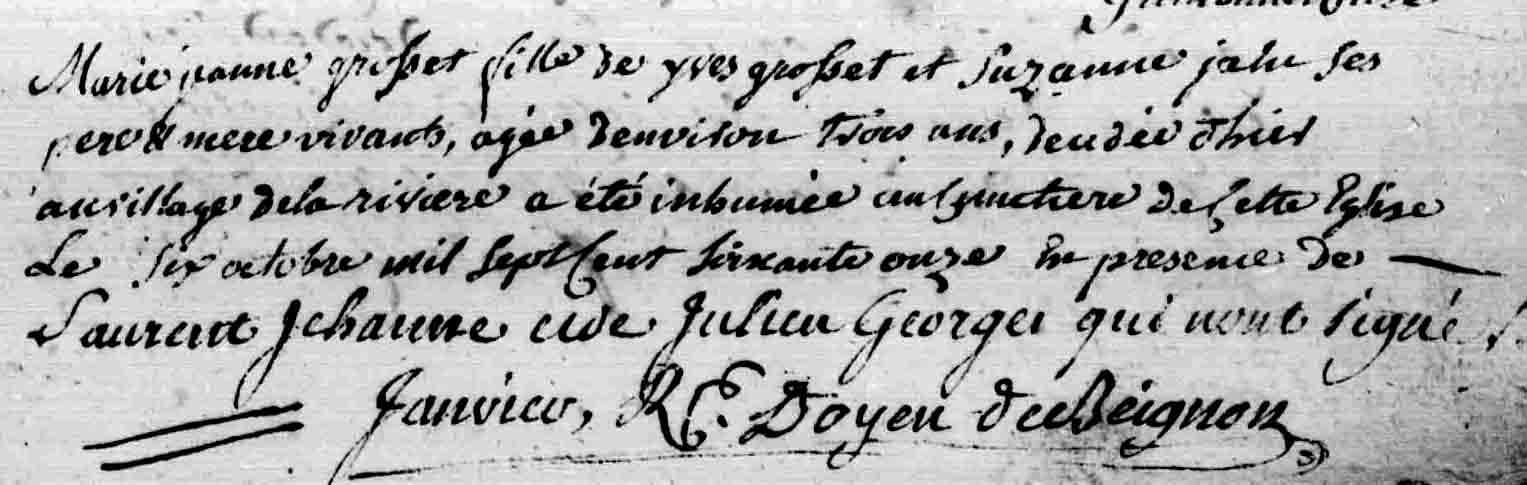 Marie jeanne grosset fille de yves grosset et Suzanne jalu ses
pere & mere vivants, agée denviron trois ans, decedée d'hier
au village de la riviere a été inhumée au cymetiere de cette Eglise
Le six octobre mil sept cent soixante onze En presence de
Laurent Jehanne et de Julien Georges qui n'ont signé .
Janvier, R.. Doyen de Beignon